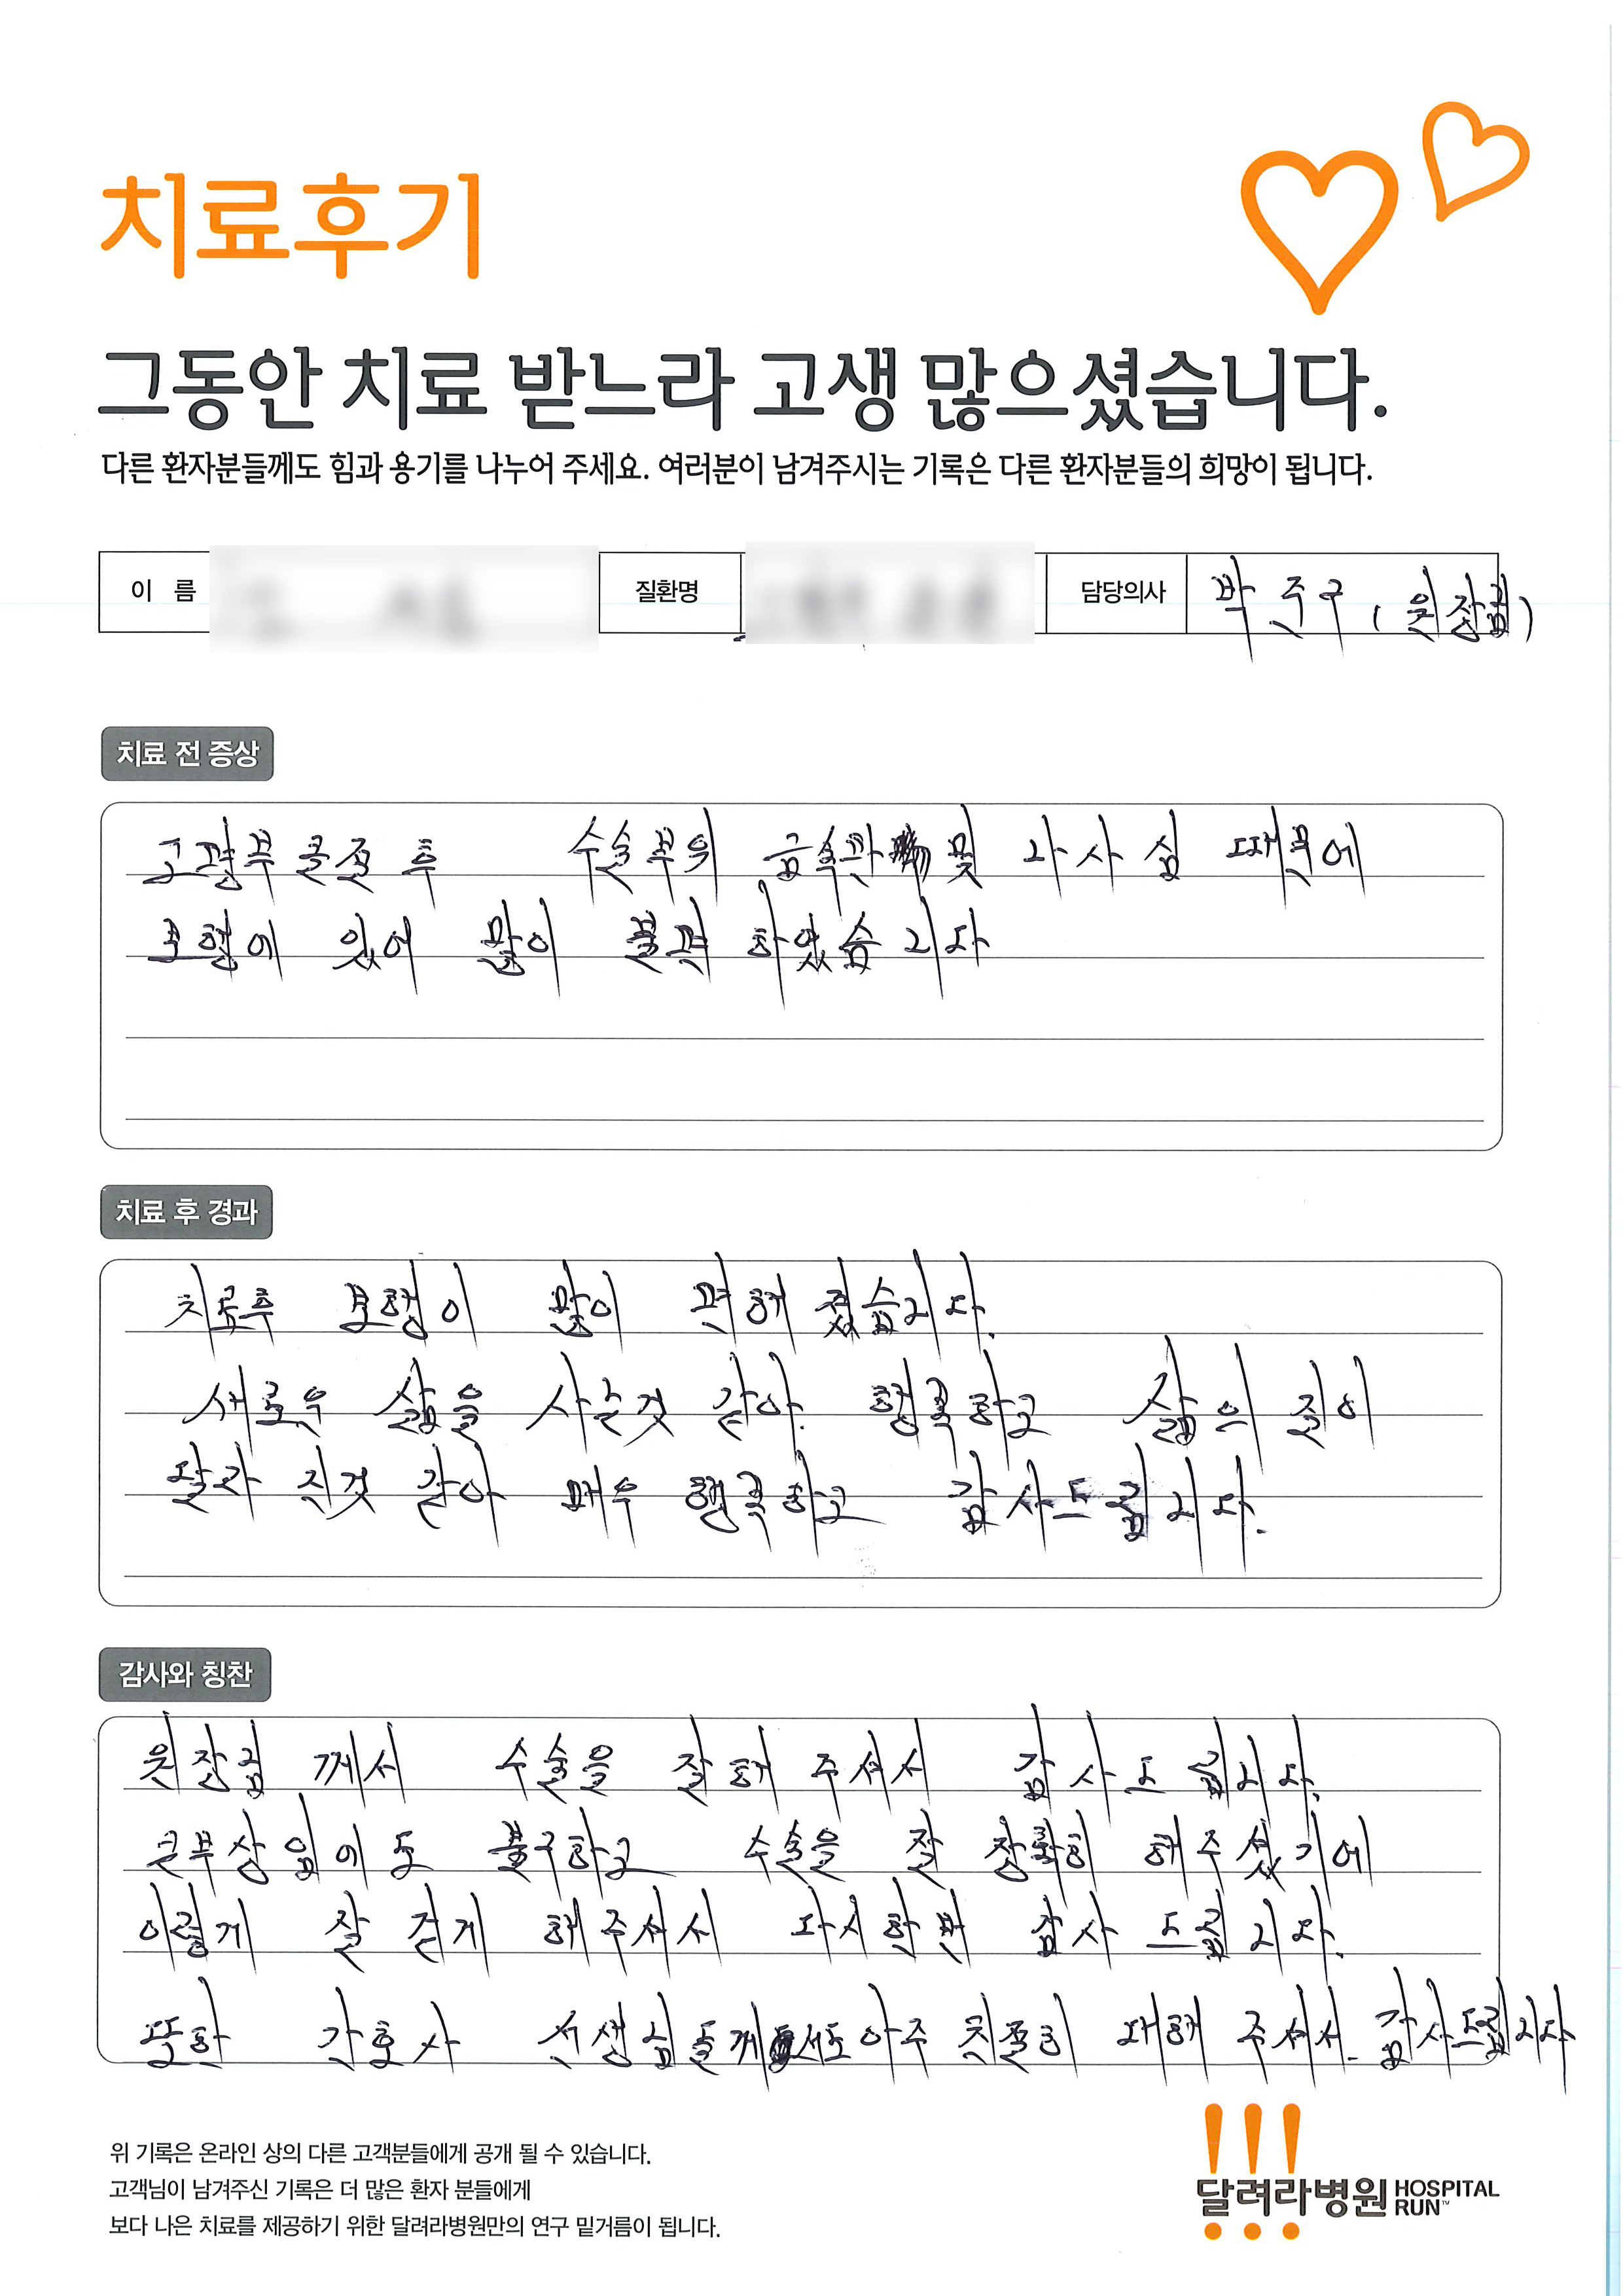 치료후기
그동안 치료 받느라 고생 많으셨습니다.
다른 환자분들께도 힘과 용기를 나누어 주세요. 여러분이 남겨주시는 기록은 다른 환자분들의 희망이 됩니다.
이 름 질환명 담당의사 박진구 (원장님)
치료 전 증상
고평부 골절 후 수술부위 금속판 및 나사심 때문에
보행에 있어 많이 불편 하였습니다
치료 후 경과
치료후 보행이 많이 편해 졌습니다.
새로운 삶을 사는것 같아. 행복하고 삶의 질이
달라 진것 같아 매우 행복하고 감사드립니다.
감사와 칭찬
원장님 께서 수술을 잘해 주셔서 감사드립니다.
큰부상임에도 불구하고 수술을 잘 정확히 해주셨기에
이렇게 잘 걷게 해주셔서 다시한번 감사드립니다.
또한 간호사 선생님들께서도 아주 친절히 대해 주셔서. 감사드립니다
위 기록은 온라인 상의 다른 고객분들에게 공개 될 수 있습니다.
고객님이 남겨주신 기록은 더 많은 환자 분들에게
보다 나은 치료를 제공하기 위한 달려라병원만의 연구 밑거름이 됩니다.
!!!
달려라병원 HOSPITAL RUN™